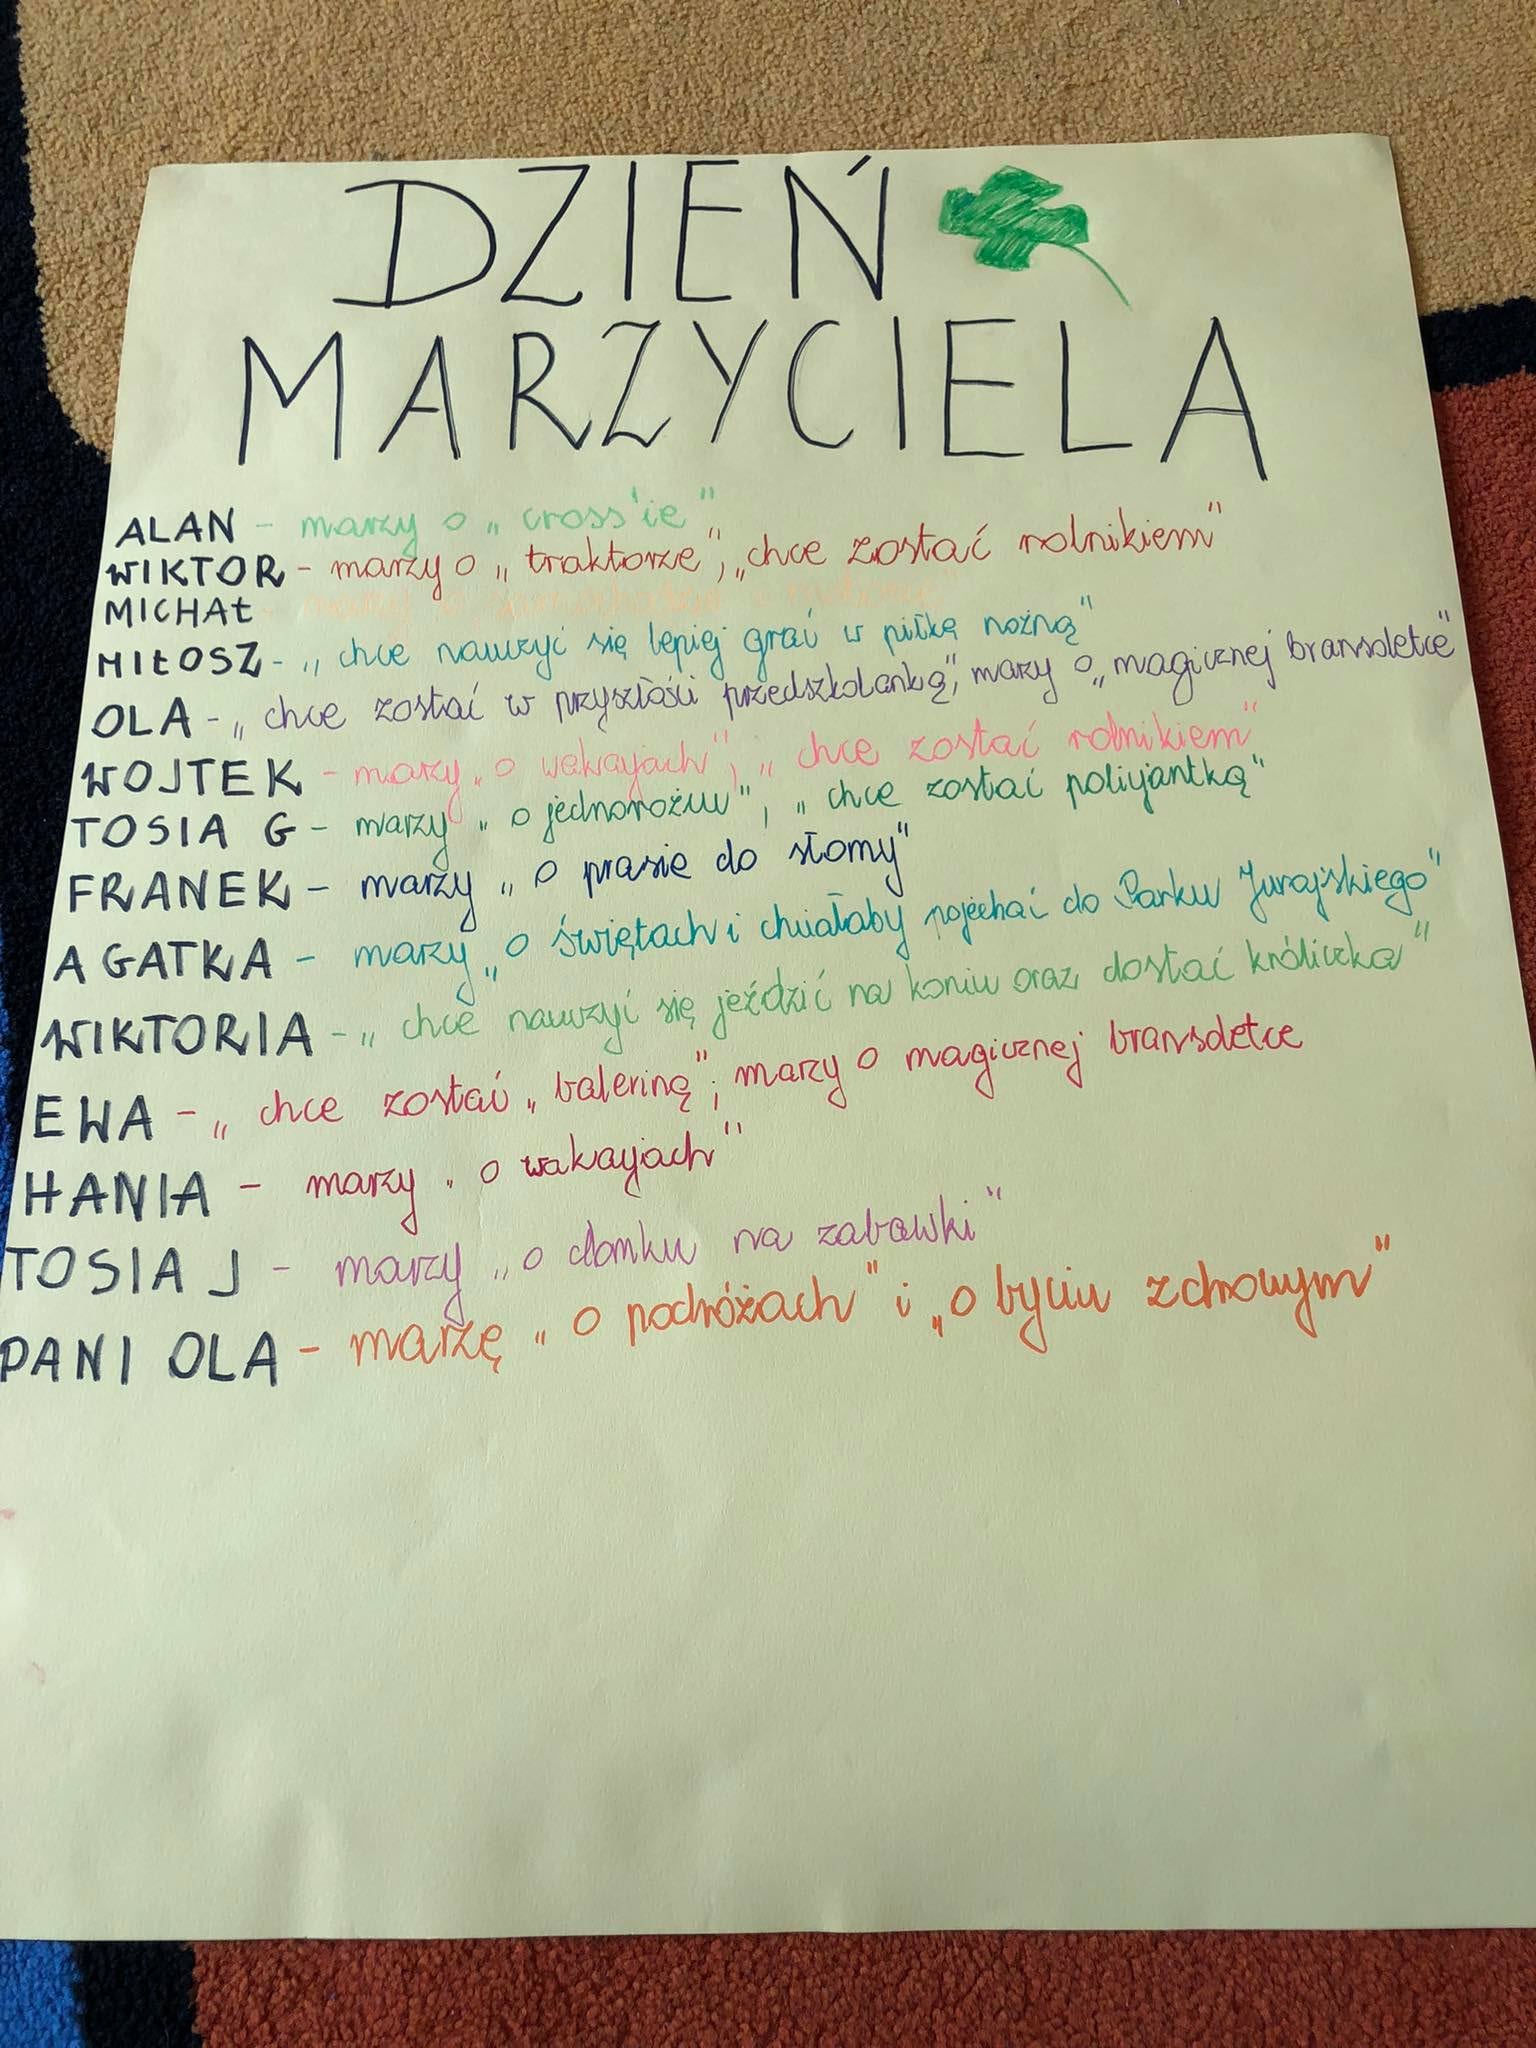 DZIEŃ
MARZYCIELA
ALAN - marzy o „cross'ie"
WIKTOR - marzy o „traktorze", „chce zostać rolnikiem"
MICHAŁ - marzy o samochodzie i
MIŁOSZ - „chce nauczyć się lepiej grać w piłkę nożną"
OLA - „chce zostać w przyszłości przedszkolanką", marzy o „magicznej bransoletce"
WOJTEK - marzy „o wakacjach", „chce zostać rolnikiem"
TOSIA G - marzy „o jednorożcu", „chce zostać policjantką"
FRANEK - marzy „o prasie do słomy"
AGATKA - marzy „o świętach i chciałaby pojechać do Parku Jurajskiego"
WIKTORIA - „chce nauczyć się jeździć na koniu oraz dostać króliczka"
EWA - „chce zostać „baleriną"; marzy o magicznej bransoletce
HANIA - marzy „o wakacjach"
TOSIA J - marzy „o domku na zabawki"
PANI OLA - marzę „o podróżach" i „o byciu zdrowym"